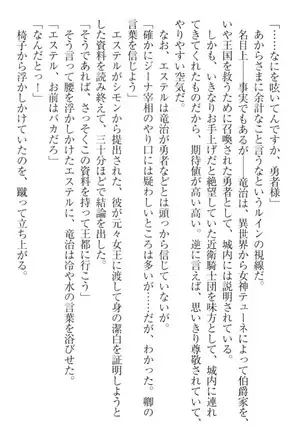 「……なにを呟いてんですか、勇者様」
あからさまに余計なこと言うなというルインの視線だ。
名目上――事実でもあるが――竜治は、異世界から女神テューネによって伯爵家を、ひ
いや王国を救うために召喚された勇者として、城内には説明されている。
しかも、いきなりお手上げだと絶望していた近衛騎士団を味方として、城内に連れ
てきてくれたものだから、期待値が高い高い。逆に言えば、思いっきり尊敬されていて、
やりやすい空気だ。
なお、エステルは竜治が勇者などとは頭っから信じていない。
「確かにジーナ宰相のやり口には疑わしいところは多いが……だが、わかった。卿の
言葉を信じよう」
エステルがシモンから提出された、彼が元々女王に渡して身の潔白を証明しようと
した資料を読み終えて、三十分ほどで結論を出した。
「そうであれば、さっそくこの資料を持って王都に行こう」
そう言って腰を浮かしかけたエステルに、竜治は冷や水の言葉を浴びせた。
「エステル、お前はバカだろ」
「なんだとっ！」
椅子から浮かしかけていたのを、蹴って立ち上がる。